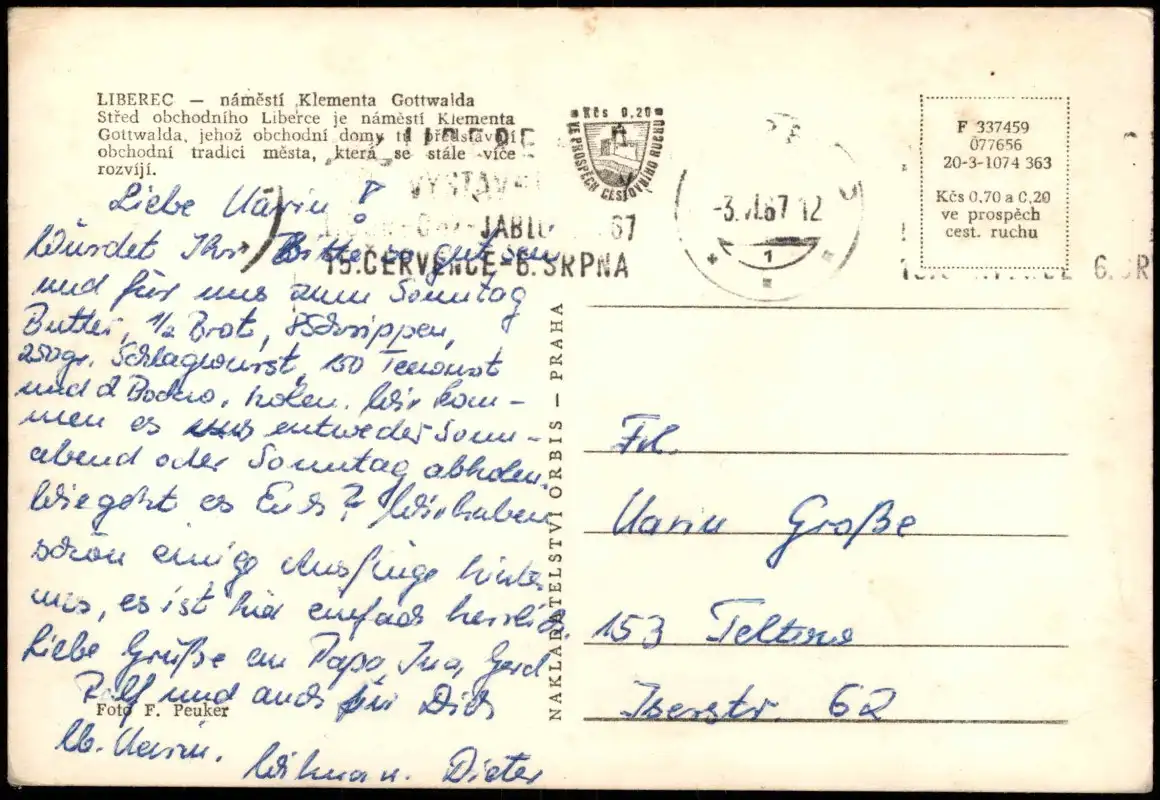 LIBEREC — náměstí Klementa Gottwalda
Střed obchodního Liberce je náměstí Klementa
Gottwalda, jehož obchodní domy tu představují
obchodní tradici města, která se stále více
rozvíjí.
Kčs 0,20
VE PROSPĚCH CESTOVNÍHO RUCHU
LIBERE
VÝSTAV
JABLO 67
15.ČERVENCE-6.SRPNA
-3.VI.67 12
1
F 337459
077656
20-3-1074 363
Kčs 0,70 a 0,20
ve prospěch
cest. ruchu
6.SR
Liebe Karin!
Würdet Ihr Bitte so gut sein
und für uns zum Sonntag
Butter, 1/2 Brot, 8 Schrippen,
250gr. Schlagwurst, 150 Teewurst
und 2 holen. Wir kom-
men es entweder Sonn-
abend oder Sonntag abholen.
Wie geht es Euch? Wir haben
schon einige Ausflüge hinter
uns, es ist hier einfach herrlich.
Liebe Grüße an Papa, Ina, Gerd
Rolf und auch für Dich
lb. Karin.
Wilma u. Dieter
Foto F. Peuker
NAKLADATELSTVÍ ORBIS — PRAHA
Frl.
Karin Große
153 Teltow
Iserstr. 62